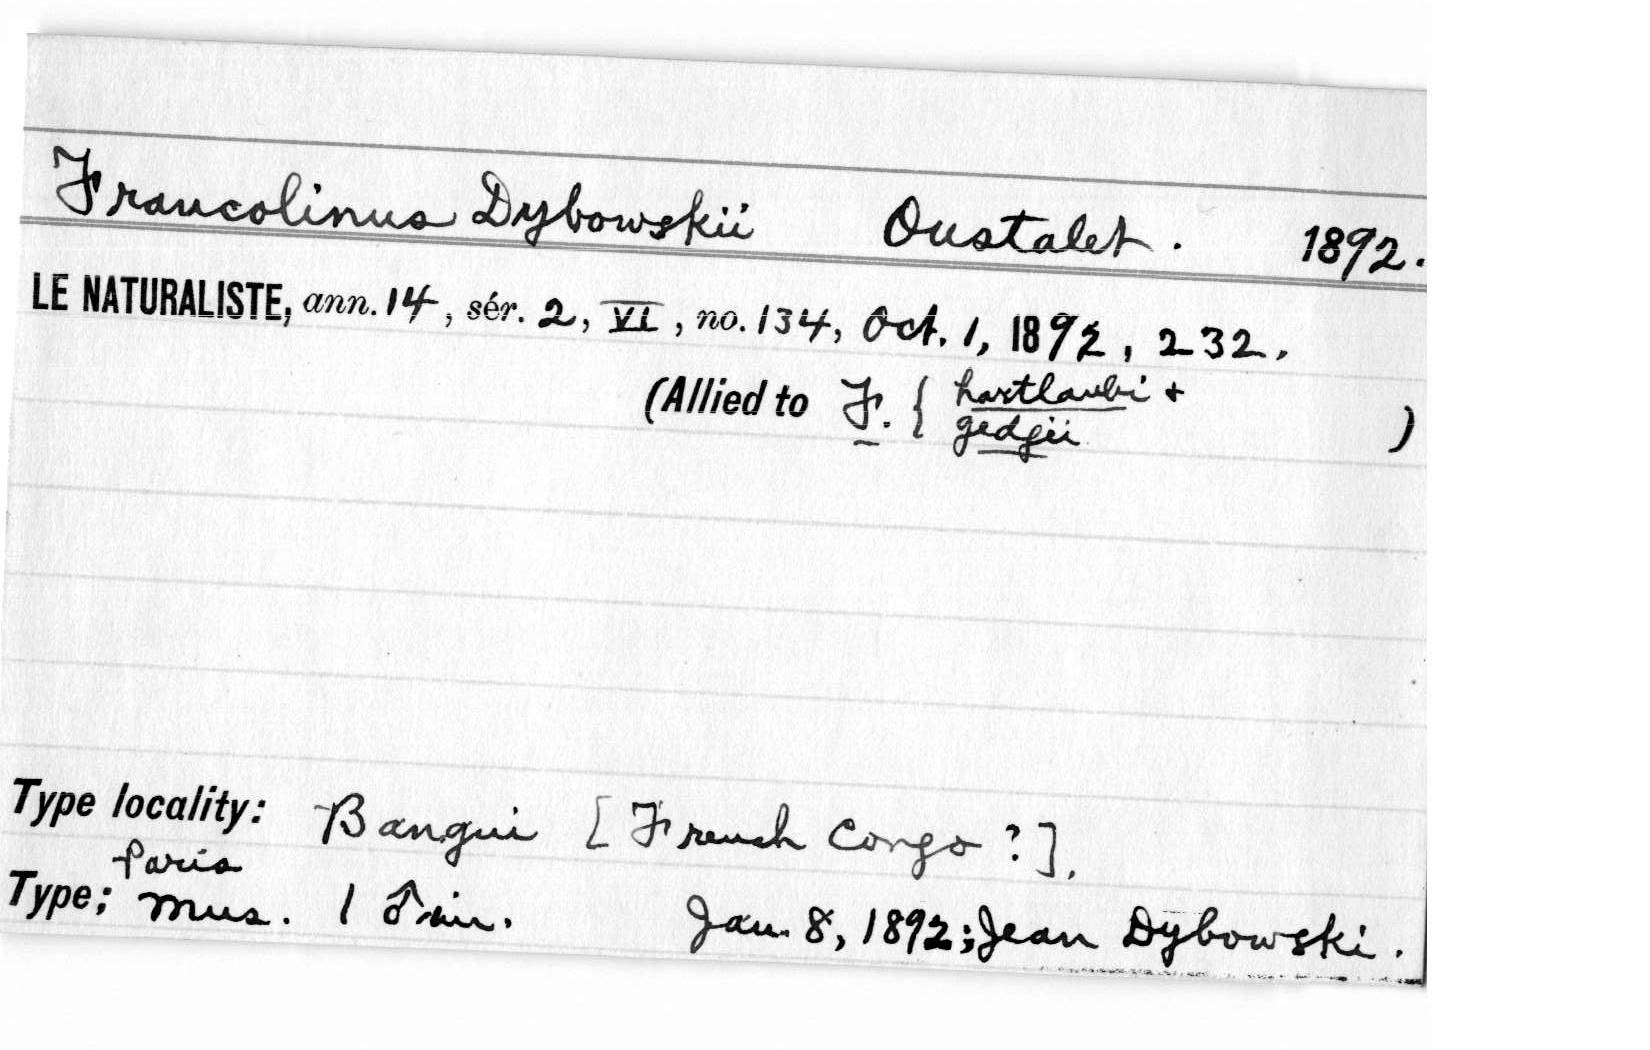 Francolinus Dybowskii Oustalet. 1892.
LE NATURALISTE, ann. 14, sér. 2, VI, no. 134, Oct. 1, 1892, 232.
(Allied to F. { hartlaubi +
gedgii )
Type locality: Bangui [French Congo?].
Paris
Type; Mus. 1 ♂ im. Jan. 8, 1892; Jean Dybowski.